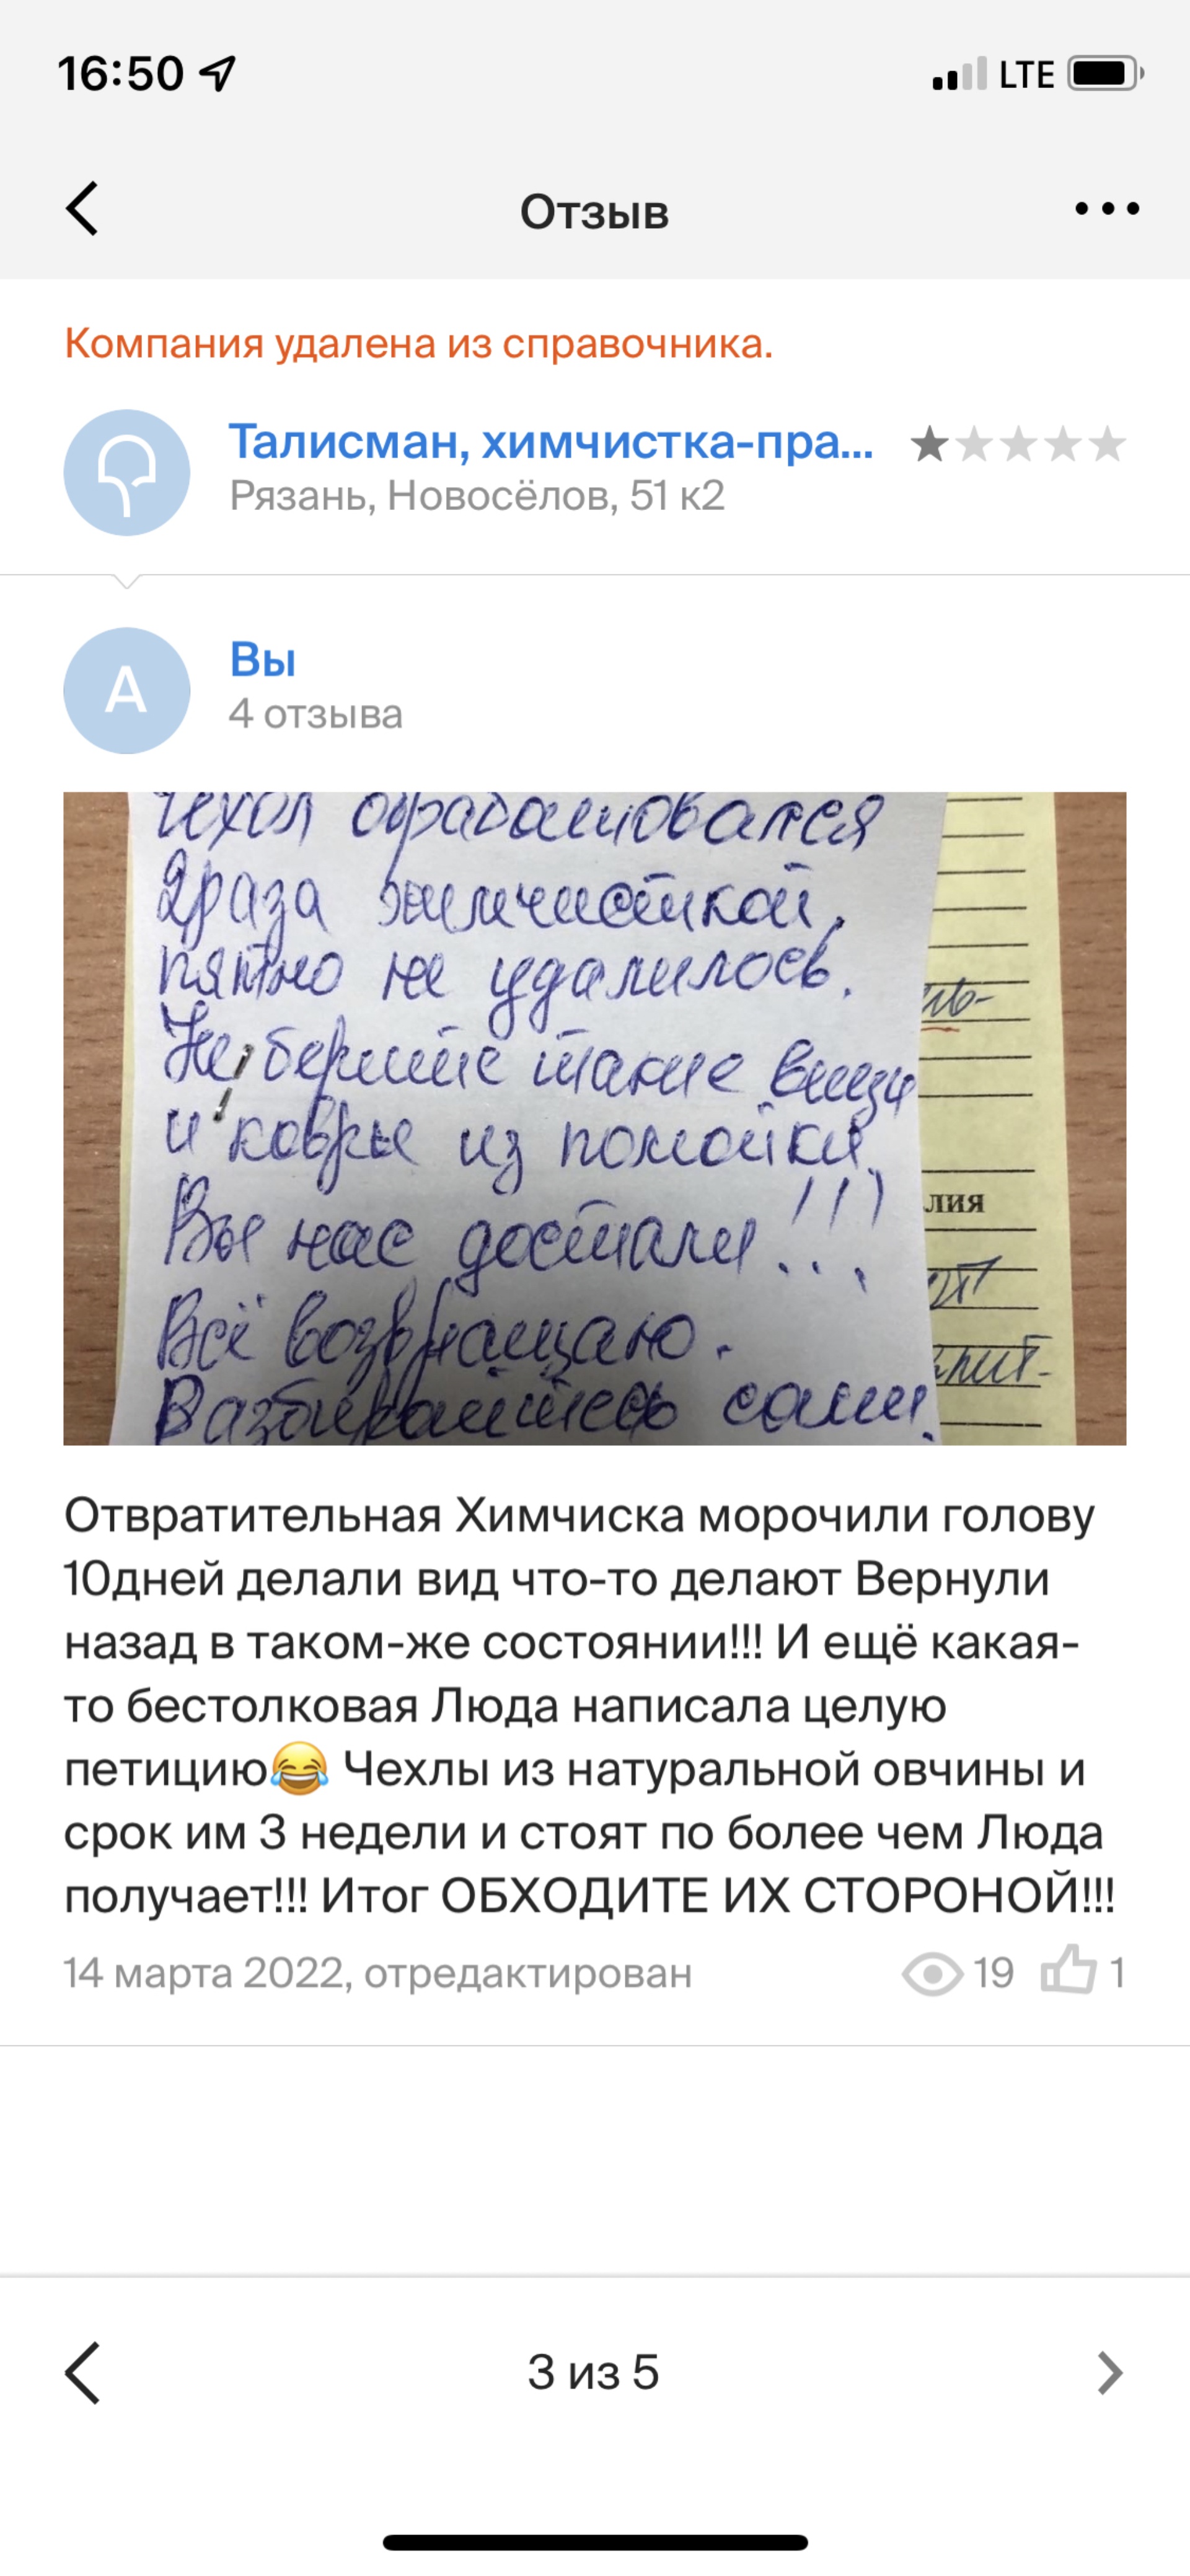 16:50
LTE
Отзыв
Компания удалена из справочника.
Талисман, химчистка-пра...
Рязань, Новосёлов, 51 к2
А
Вы
4 отзыва
Чехол обрабатывался
2 раза химчисткой,
пятно не удалилось.
Не берите такие вещи
и ковры из помойки,
Вы нас достали!!!
Всё возвращаю.
Разбирайтесь сами.
лия
Отвратительная Химчиска морочили голову
10дней делали вид что-то делают Вернули
назад в таком-же состоянии!!! И ещё какая-
то бестолковая Люда написала целую
петицию😂 Чехлы из натуральной овчины и
срок им 3 недели и стоят по более чем Люда
получает!!! Итог ОБХОДИТЕ ИХ СТОРОНОЙ!!!
14 марта 2022, отредактирован
19
1
3 из 5